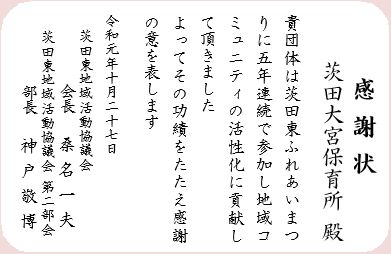 感謝状
茨田大宮保育所 殿
貴団体は茨田東ふれあいまつ
りに五年連続で参加し地域コ
ミュニティの活性化に貢献し
て頂きました
よってその功績をたたえ感謝
の意を表します
令和元年十月二十七日
茨田東地域活動協議会
会長 桑名一夫
茨田東地域活動協議会 第二部会
部長 神戸敬博